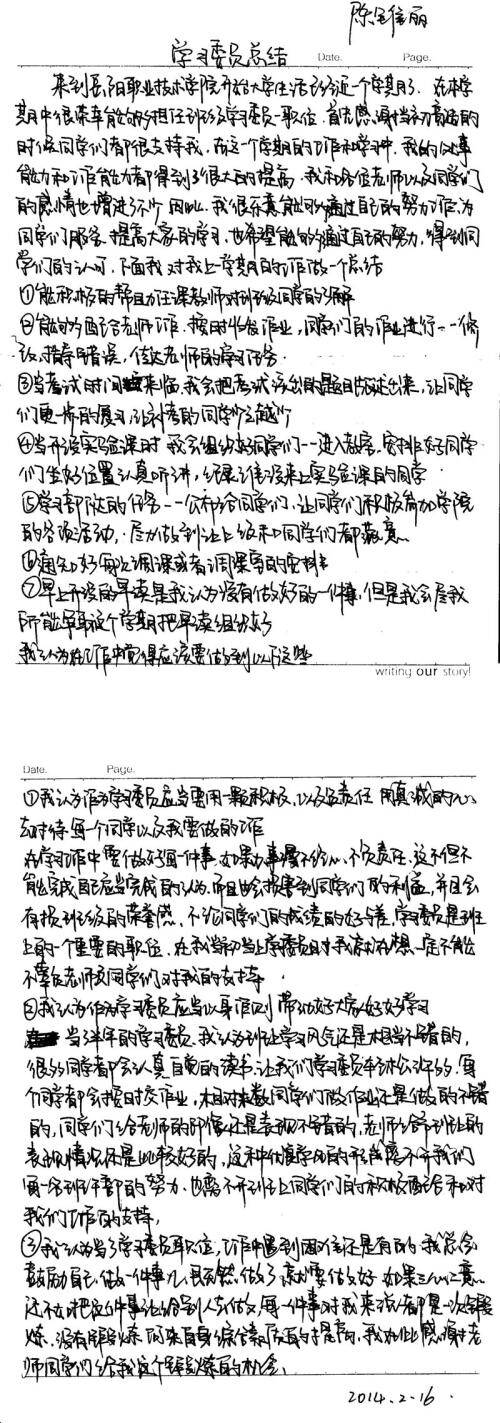 学习委员总结
Date. Page.
来到岳阳职业技术学院开始大学生活已经一个学期了. 在本学
期中很荣幸能够担任班级学习委员一职位. 首先感谢当初竞选的
时候同学们都很支持我. 在这个学期的工作和学习中. 我的处事
能力和工作能力都得到了很大的提高. 我和各位老师以及同学们
的感情也增进了不少 因此. 我很乐意能够通过自己的努力工作. 为
同学们服务. 提高大家的学习. 也希望能够通过自己的努力. 得到同
学们的认可. 下面我对我上学期的工作做一个总结
①能积极的帮助任课教师对班级同学的了解
②能够配合老师工作. 按时收给作业, 同学们的作业进行一一修
改. 指导错误. 传达老师的学习任务.
③当考试时间来临. 我会把考试该出的题目阐述出来, 让同学
们更一步的复习. 让补考的同学少之越少
④当开设实验课时 我会组织好同学们一一进入教室. 安排好同学
们坐好位置认真听讲, 纪录迟到没来上实验课的同学
⑤学习部下达的任务一一公布给同学们. 让同学们积极参加学院
的各项活动. 尽力做到让上级和同学们都满意..
⑥通知好每次调课或者调课室的安排
⑦早上开设的早读是我认为没有做好的一件事. 但是我会尽我
所能争取这个学期把早读组织好
我认为在工作中觉得应该要做到以下这些
writing our story!
Date. Page.
①我认为作为学习委员应当要用一颗积极. 以及负责任 用真诚的心
去对待每一个同学以及我需做的工作
在学习工作中要做好每一件事. 如果办事漫不经心、不负责任. 这不但不
能完成自己应当完成的认为. 而且也会损害到同学们的利益, 并且会
有损班级的荣誉感. 不论同学们的成绩的好与差, 学习委员是班
上的一个重要的职位. 在我当初当上学委员时我就在想 一定不能
不辜负老师及同学们对我的支持.
②我认为作为学习委员应当以身作则 带动好大家好好学习
当了半年的学习委员. 我认为班上学习风气还是相当不错的,
很多同学都会认真自觉的读书. 让我们学习委员车沐公许多. 每
个同学都会按时交作业, 相对来数同学们做作业还是做的不错
的, 同学们给老师的印像还是表现不错的, 老师给予班上的
表现情况还是比较好的, 这种优良学风的形成离不开我们
每一名班干部的努力. 也离不开班上同学们的积极配合和对
我们工作的支持,
③我认为当了学习委员职位, 工作中遇到困难还是有的. 我总会
鼓励自己 做一件事儿 既然做了就要做好 如果三心二意..
还不如把这件事让给别人去做, 每一件事对我来说都是一次锻
炼. 没有锻炼 何来自身综合素质的提高, 我为此感谢老
师同学们给我这个锻炼的机会.
2014.2.16.